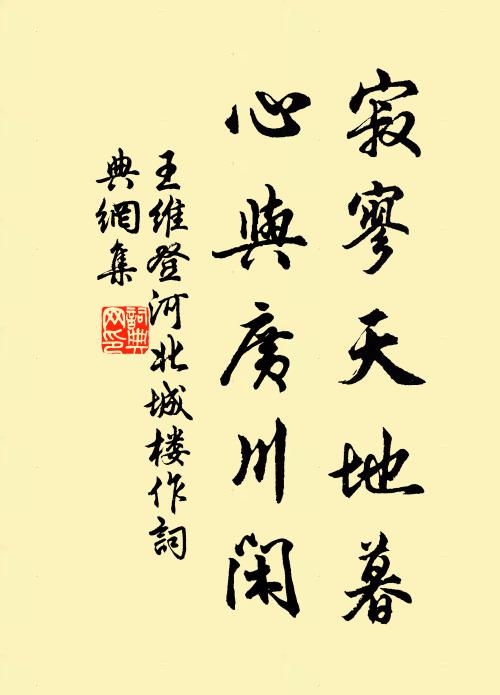 寂寥天地暮
心與廣川閑
王維登河北城楼作詞
典網集
詞典
网印